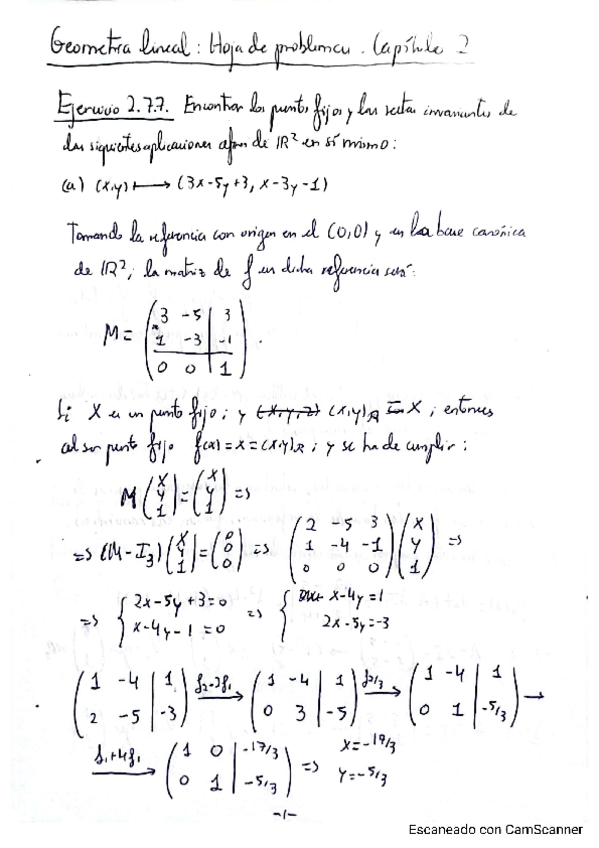 Geometría lineal: Hoja de problemas. Capítulo 2
Ejercicio 2.7.7. Encontrar los puntos fijos y las rectas invariantes de
las siguientes aplicaciones afines de IR² en sí mismo:
(a) (x,y) ⟼ (3x-5y+3, x-3y-1)
Tomando la referencia con origen en el (0,0) y en la base canónica
de IR², la matriz de f en dicha referencia será:
M = ( 3 -5 | 3
1 -3 | -1
0 0 | 1 ).
Si X es un punto fijo, y (x,y)R = X, entonces
al ser punto fijo f(x)=x=(x,y)R, y se ha de cumplir:
M (x y 1) = (x y 1) =>
=> (M-I3) (x y 1) = (0 0 0) => ( 2 -5 3
1 -4 -1
0 0 0 ) (x y 1) =>
=> { 2x-5y+3=0
x-4y-1=0 => { x-4y=1
2x-5y=-3
( 1 -4 | 1
2 -5 | -3 ) f2-2f1 → ( 1 -4 | 1
0 3 | -5 ) f2/3 → ( 1 -4 | 1
0 1 | -5/3 ) →
f1+4f1 → ( 1 0 | -17/3
0 1 | -5/3 ) => x=-17/3
y=-5/3
-1-
Escaneado con CamScanner